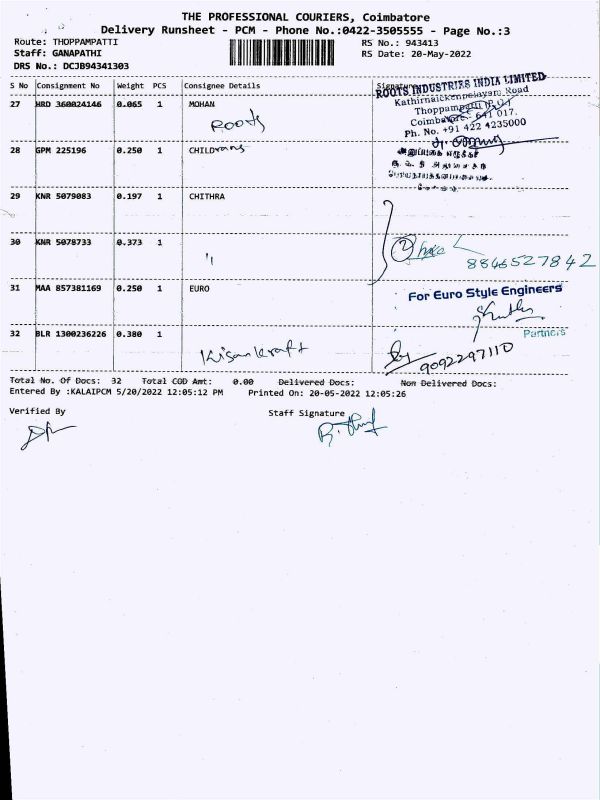 THE PROFESSIONAL COURIERS, Coimbatore
Delivery Runsheet - PCM - Phone No.:0422-3505555 - Page No.:3
Route: THOPPAMPATTI
RS No.: 943413
Staff: GANAPATHI
RS Date: 20-May-2022
DRS No.: DCJB94341303
S No Consignment No Weight PCS Consignee Details Signature
ROOTS INDUSTRIES INDIA LIMITED
27 HRD 360024146 0.065 1 MOHAN
Kathirnaickenpalayam Road
Roots
Thoppampatti (P.O.)
Coimbatore - 641 017.
Ph. No. +91 422 4235000
28 GPM 225196 0.250 1 CHILDrans
29 KNR 5079083 0.197 1 CHITHRA
30 KNR 5078733 0.373 1
"
2
8846527842
31 MAA 857381169 0.250 1 EURO
For Euro Style Engineers
Partners
32 BLR 1300236226 0.380 1
Kisankraft
9092297110
Total No. Of Docs: 32 Total COD Amt: 0.00 Delivered Docs: Non Delivered Docs:
Entered By :KALAIPCM 5/20/2022 12:05:12 PM Printed On: 20-05-2022 12:05:26
Verified By Staff Signature